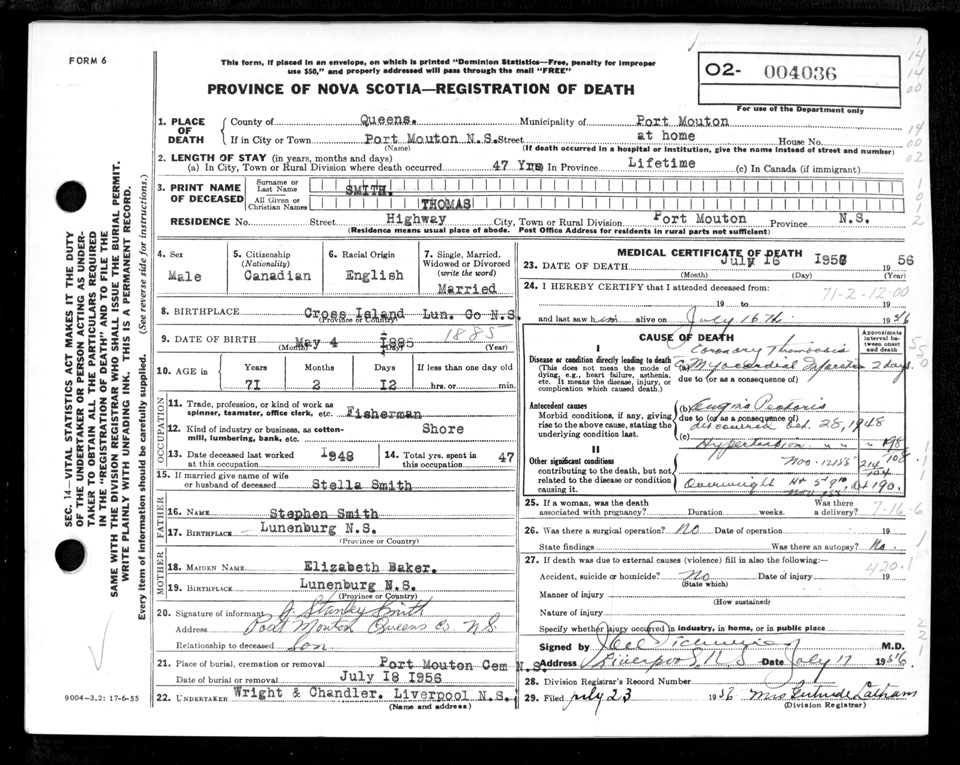 FORM 6
This form, if placed in an envelope, on which is printed "Dominion Statistics—Free, penalty for improper
use $50," and properly addressed will pass through the mail "FREE"
PROVINCE OF NOVA SCOTIA—REGISTRATION OF DEATH
02- 004036
For use of the Department only
1. PLACE OF DEATH County of Queens. Municipality of Port Mouton
If in City or Town Port Mouton N.S. Street at home House No.
(Name) (If death occurred in a hospital or institution, give the name instead of street and number)
2. LENGTH OF STAY (in years, months and days)
(a) In City, Town or Rural Division where death occurred 47 Yrs In Province Lifetime (c) In Canada (if immigrant)
3. PRINT NAME OF DECEASED Surname or Last Name SMITH.
All Given or Christian Names THOMAS
RESIDENCE No. Street Highway City, Town or Rural Division Port Mouton Province N.S.
(Residence means usual place of abode. Post Office Address for residents in rural parts not sufficient)
4. Sex Male
5. Citizenship (Nationality) Canadian
6. Racial Origin English
7. Single, Married, Widowed or Divorced (write the word) Married
8. BIRTHPLACE Cross Island Lun. Co N.S.
(Province or Country)
9. DATE OF BIRTH May 4 1885 1885
(Month) (Day) (Year)
10. AGE in Years Months Days If less than one day old
71 2 12 hrs. or min.
OCCUPATION
11. Trade, profession, or kind of work as
spinner, teamster, office clerk, etc. Fisherman
12. Kind of industry or business, as cotton-
mill, lumbering, bank, etc. Shore
13. Date deceased last worked at this occupation 1948
14. Total yrs. spent in this occupation 47
15. If married give name of wife
or husband of deceased Stella Smith
FATHER
16. NAME Stephen Smith
17. BIRTHPLACE Lunenburg N.S.
(Province or Country)
MOTHER
18. MAIDEN NAME Elizabeth Baker.
19. BIRTHPLACE Lunenburg N.S.
(Province or Country)
20. Signature of informant Stanley Smith
Address Port Mouton Queens Co N.S.
Relationship to deceased son
21. Place of burial, cremation or removal Port Mouton Cem N.S.
Date of burial or removal July 18 1956
22. UNDERTAKER Wright & Chandler. Liverpool N.S.
(Name and address)
9004-3.2: 17-6-55
MEDICAL CERTIFICATE OF DEATH
23. DATE OF DEATH July 16 1956 19 56
(Month) (Day) (Year)
24. I HEREBY CERTIFY that I attended deceased from:
71-2-12-00
19 to 19
and last saw him alive on July 16th 1956
CAUSE OF DEATH
Approximate interval between onset and death
I
Disease or condition directly leading to death
(This does not mean the mode of dying, e.g., heart failure, asthenia, etc. It means the disease, injury, or complication which caused death.)
Coronary Thrombosis
(a) Myocardial Infarction 2 days
due to (or as a consequence of)
Antecedent causes
Morbid conditions, if any, giving rise to the above cause, stating the underlying condition last.
(b) Angina Pectoris
due to (or as a consequence of)
discovered Oct. 28, 1948
(c) Hypertension " " "
II
Other significant conditions
contributing to the death, but not related to the disease or condition causing it.
Overweight Ht 5' 9" Wt 190.
25. If a woman, was the death
associated with pregnancy? Duration weeks. Was there a delivery?
7-16-6
26. Was there a surgical operation? No Date of operation 19
State findings Was there an autopsy? No.
27. If death was due to external causes (violence) fill in also the following: 420.1
Accident, suicide or homicide? No Date of injury 19
(State which)
Manner of injury
(How sustained)
Nature of injury
Specify whether injury occurred in industry, in home, or in public place
Signed by M.D.
Address Liverpool, N.S. Date July 17 1956.
28. Division Registrar's Record Number
29. Filed July 23 1956 Mrs Gertrude Latham
(Division Registrar)
SEC. 14—VITAL STATISTICS ACT MAKES IT THE DUTY
OF THE UNDERTAKER OR PERSON ACTING AS UNDER-
TAKER TO OBTAIN ALL THE PARTICULARS REQUIRED
IN THE "REGISTRATION OF DEATH" AND TO FILE THE
SAME WITH THE DIVISION REGISTRAR WHO SHALL ISSUE THE BURIAL PERMIT.
WRITE PLAINLY WITH UNFADING INK. THIS IS A PERMANENT RECORD.
Every item of information should be carefully supplied. (See reverse side for instructions.)